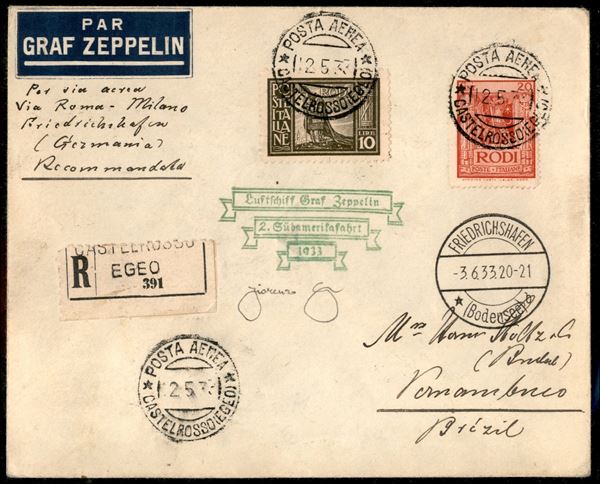 PAR
GRAF ZEPPELIN
Per via aerea
Via Roma-Milano
Friedrichshafen
(Germania)
Recommandata
POSTA AEREA
12.5.33
CASTELROSSO(EGEO)
POSTE ITALIANE
RODI
LIRE 10
POSTA AEREA
12.5.33
CASTELROSSO(EGEO)
20
RODI
POSTE ITALIANE
Luftschiff Graf Zeppelin
2. Südamerikafahrt
1933
CASTELROSSO
R EGEO
391
FRIEDRICHSHAFEN
-3.6.33.20-21
(Bodensee)
POSTA AEREA
12.5.33
CASTELROSSO(EGEO)
Pernambuco
Brézil